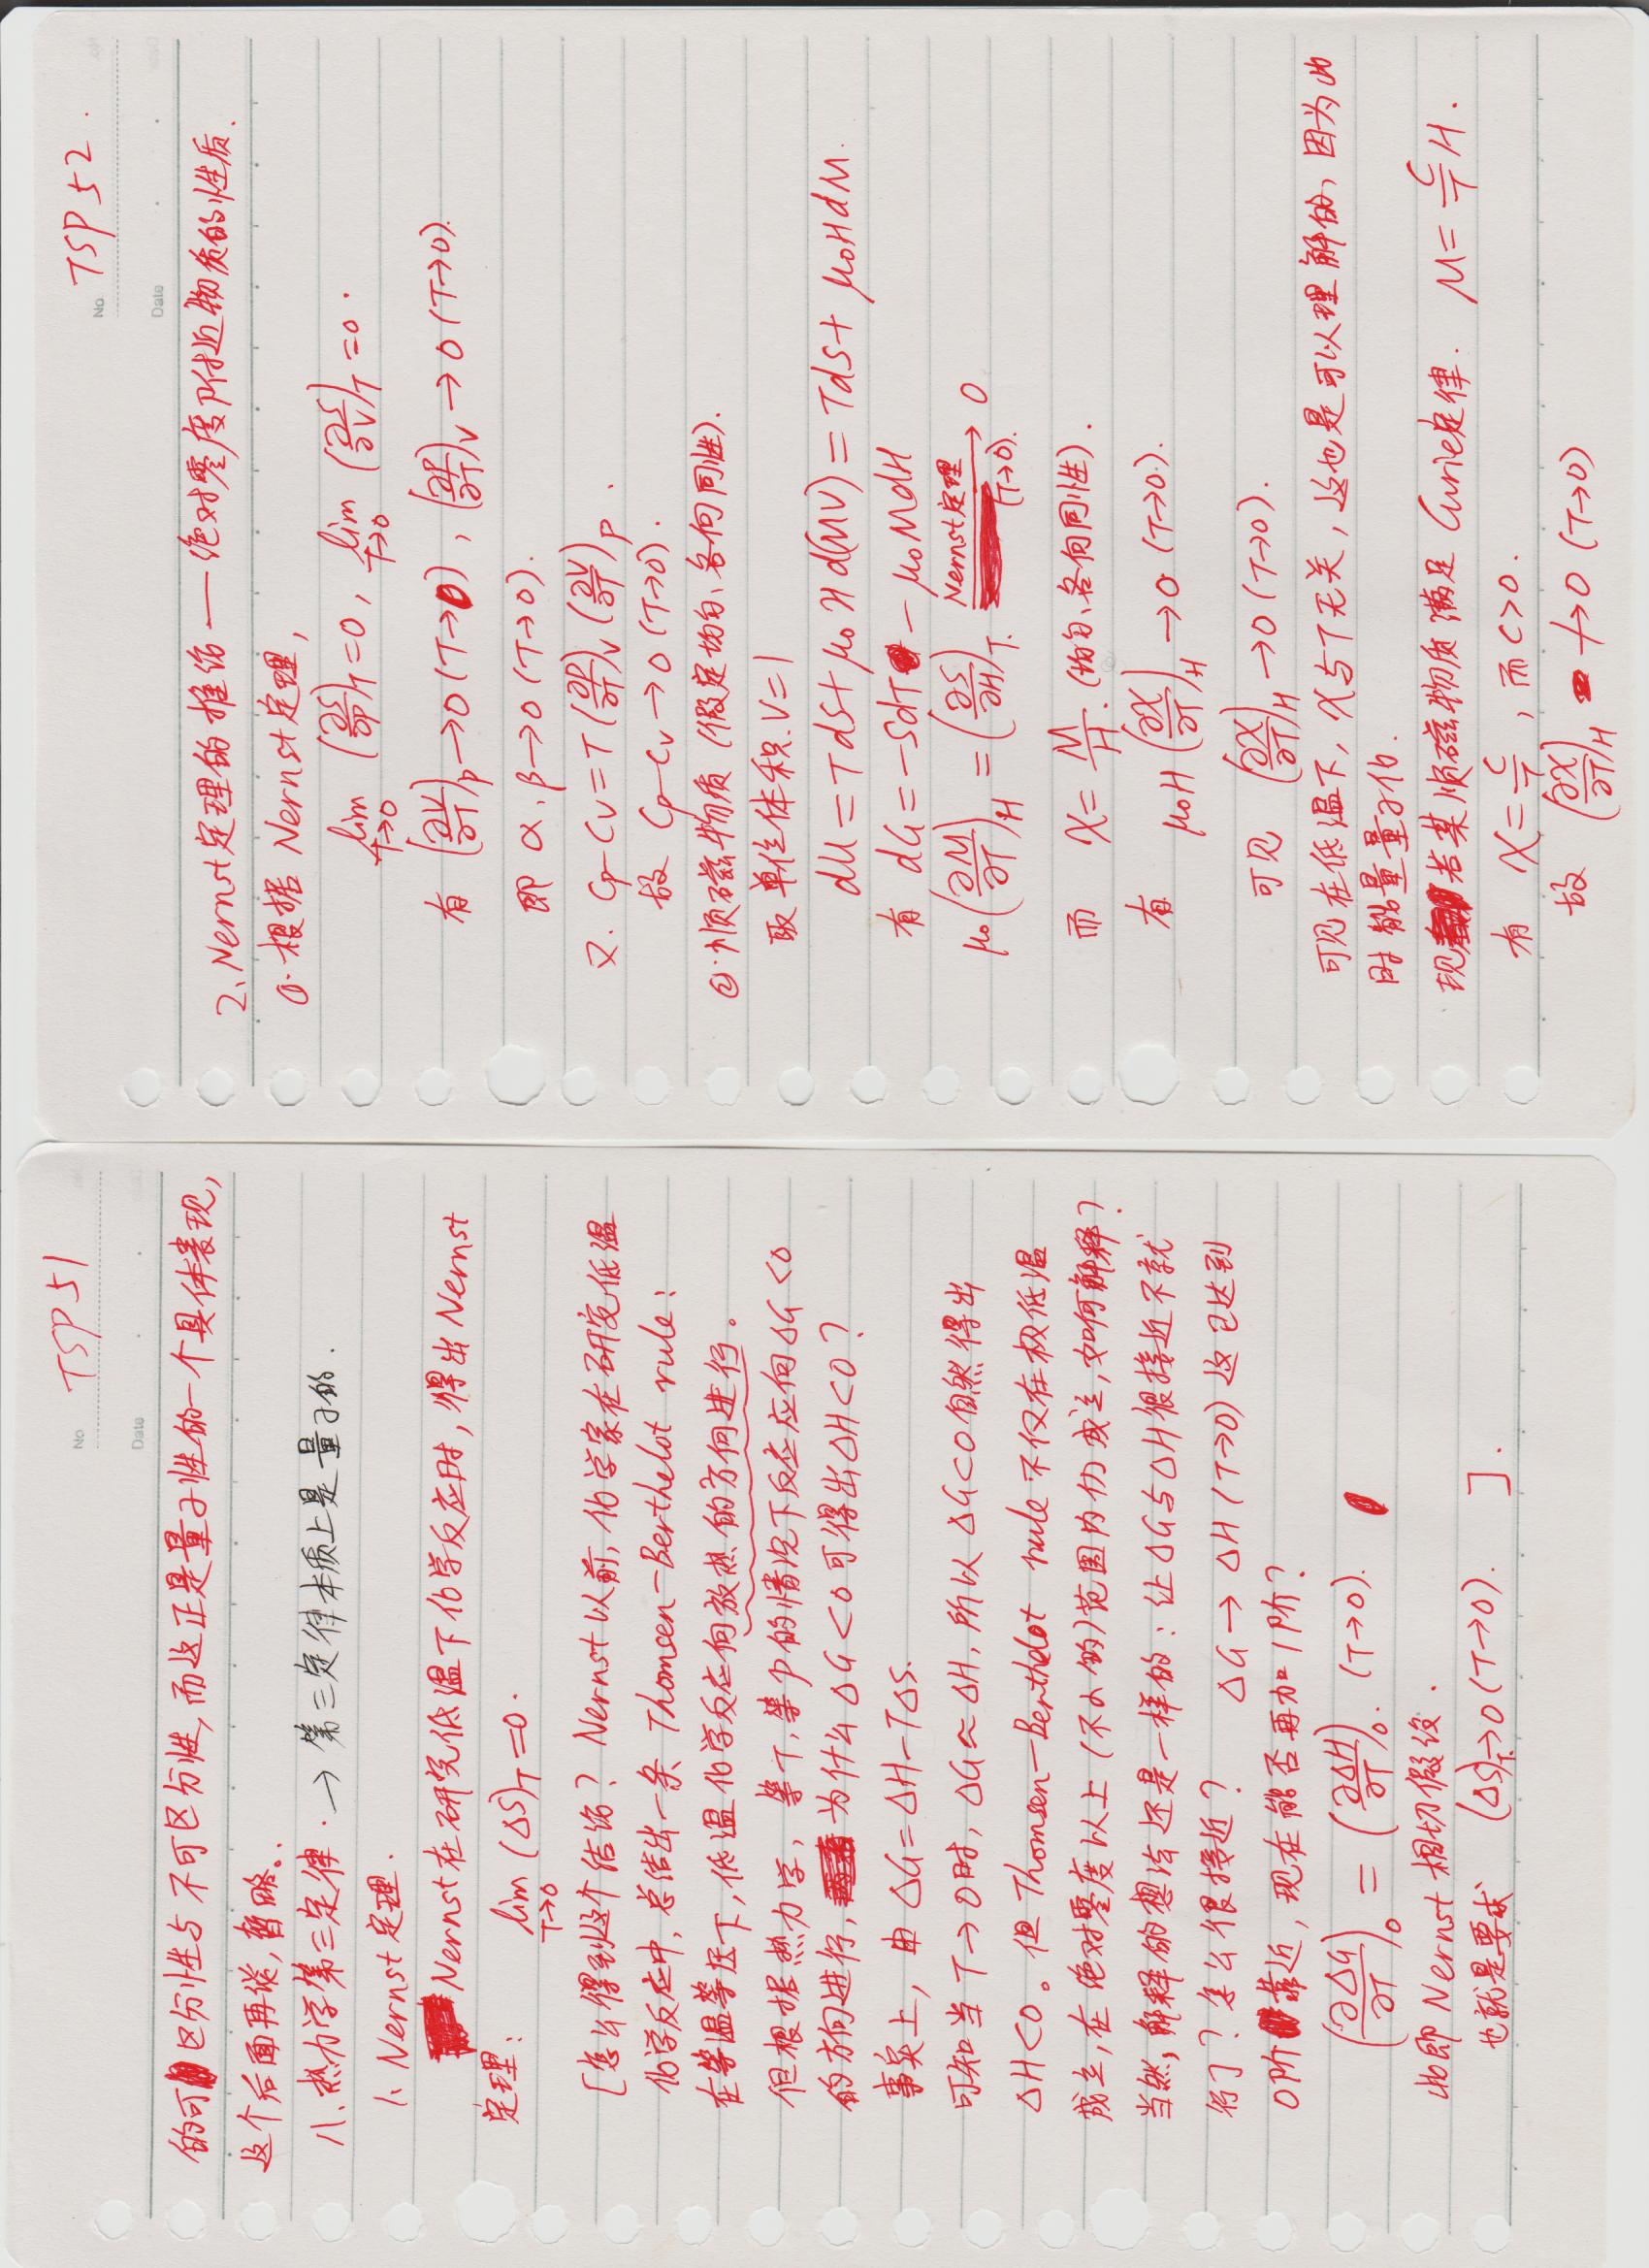 No TSP 51
Date
的可区分性与不可区分性,而这正是量子性的一个具体表现,
这个后面再谈,暂略..
八.热力学第三定律. → 第三定律本质上是量子的.
1. Nernst定理.
Nernst在研究低温下化学反应时,得出Nernst
定理: lim_{T→0} (ΔS)_T = 0.
[怎么得到这个结论? Nernst以前,化学家在研究低温
化学反应中,总结出一条 Thomsen-Berthelot rule:
在等温等压下,低温化学反应向放热的方向进行。
但根据热力学,等T,等p的情况下反应应向ΔG<0
的方向进行,为什么ΔG<0可得出ΔH<0?
事实上,由 ΔG=ΔH-TΔS.
可知当T→0时,ΔG≈ΔH,所以ΔG<0自然得出
ΔH<0。但Thomsen-Berthelot rule不仅在极低温
成立,在绝对零度以上(不大的)范围内仍成立,如何解释?
当然,解释的想法还是一样的:让ΔG与ΔH很接近不就
行了?怎么很接近? ΔG→ΔH(T→0)这已达到
0阶靠近,现在能否再加1阶?
(∂ΔG/∂T)_0 = (∂ΔH/∂T)_0. (T→0).
此即Nernst相切假设.
也就是要求 (ΔS)_T→0(T→0). ].
No TSP 52.
Date
2.Nernst定理的推论——绝对零度附近物质的性质.
①.根据 Nernst定理,
lim_{T→0} (∂S/∂p)_T=0, lim_{T→0} (∂S/∂V)_T=0.
有 (∂V/∂T)_p→0(T→0), (∂p/∂T)_V→0(T→0).
即 α,β→0(T→0).
又. Cp-Cv=T(∂p/∂T)_V(∂V/∂T)_p.
故 Cp-Cv→0(T→0).
②.顺磁物质(假定均匀、各向同性).
取单位体积.V=1
dU=TdS+μ₀Hd(MV)=TdS+μ₀HdM.
有 dG=-SdT-μ₀MdH
μ₀(∂M/∂T)_H=(∂S/∂H)_T. Nernst定理→(T→0). 0
而 χ=M/H.(均匀、各向同性).
有. μ₀H(∂χ/∂T)_H→0 (T→0).
可见 (∂χ/∂T)_H→0(T→0).
可见在低温下,χ与T无关,这也是可以理解的,因为此
时能量量子化.
现若某顺磁物质满足 Curie定律. M=C/T H.
有 χ=C/T,而C>0.
故 (∂χ/∂T)_H ↛0 (T→0)